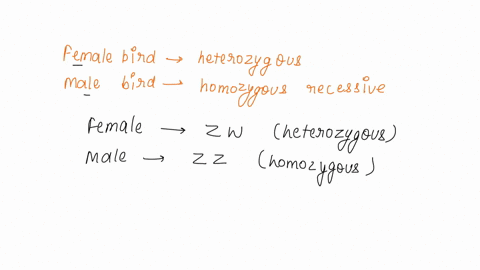 Female bird → heterozygous
Male bird → homozygous recessive
Female → ZW (heterozygous)
Male → ZZ (homozygous)